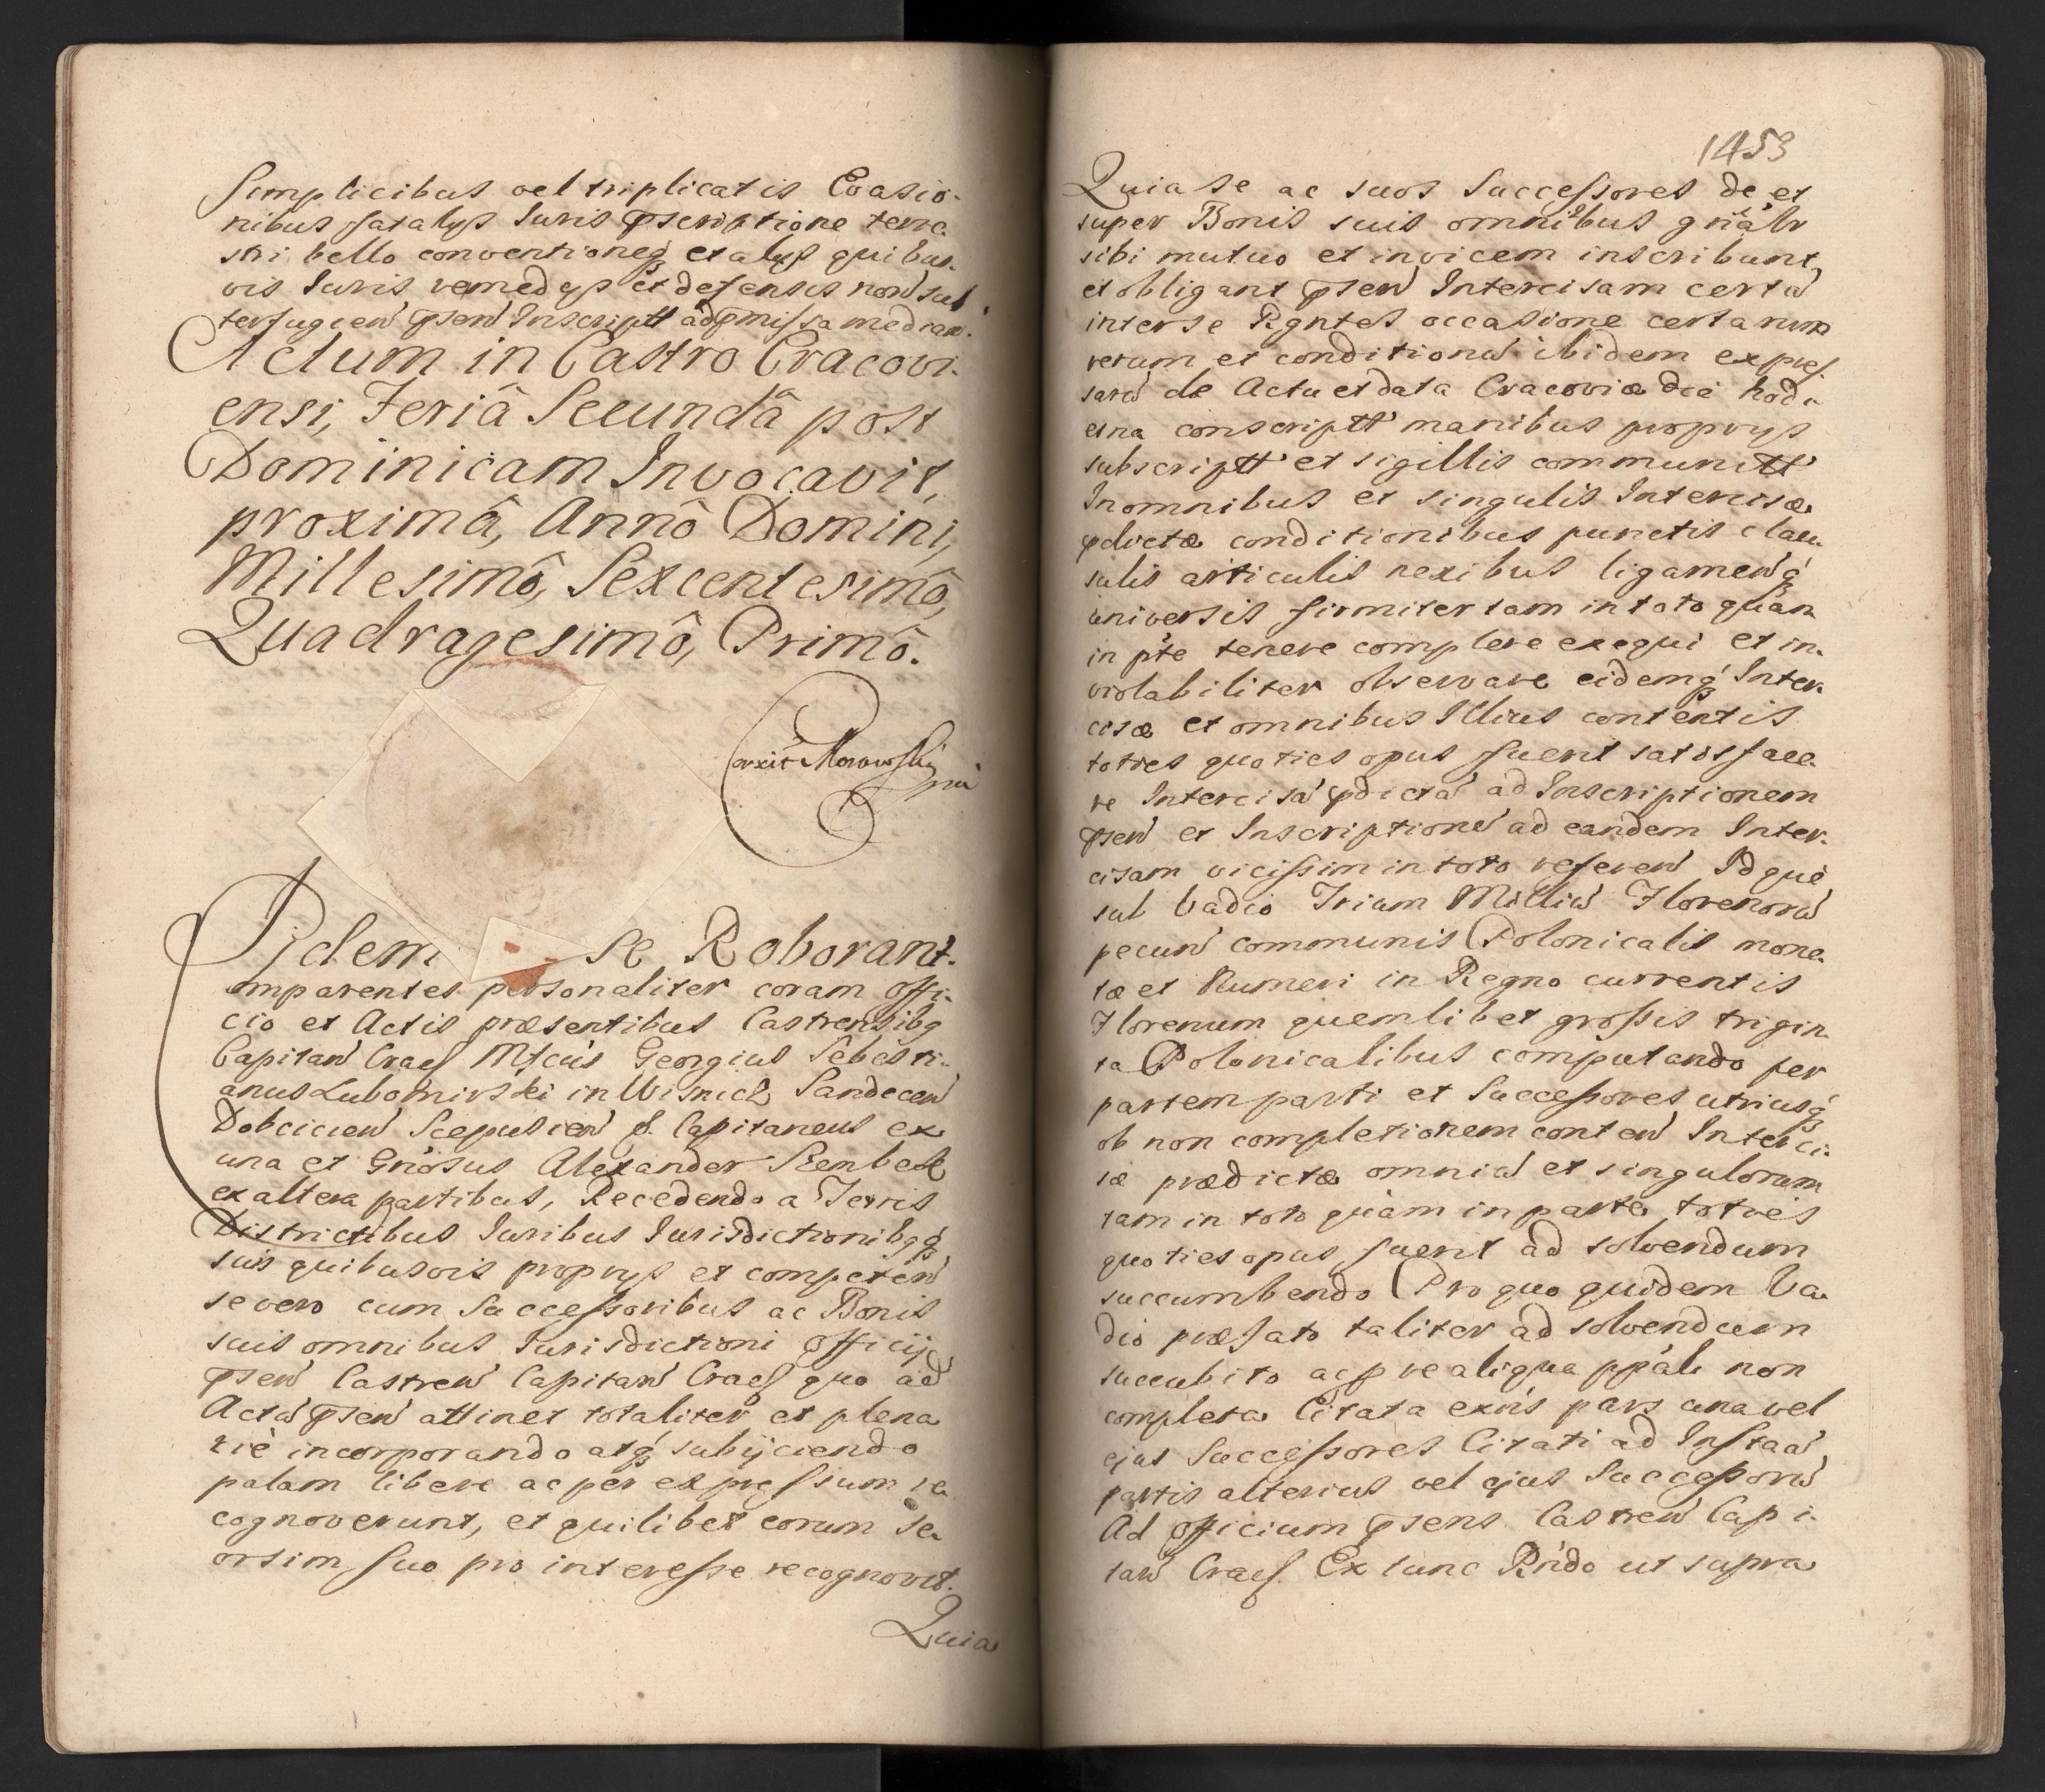 Simplicibus vel triplicatis Evasio-
nibus fatalys Iuris pscriptione terre
stri bello conventioneq et alys quibus-
vis Iuris remedys et defensis non sub
terfugien psen Inscriptt ad pmissa median.
Actum in Castro Cracovi-
ensi, Feriâ Secundâ post
Dominicam Invocavit,
proximâ, Annô Domini,
Millesimô, Sexcentesimô,
Quadragesimô, Primô.
Idem se Roborant.
Comparentes personaliter coram offi-
cio et Actis præsentibus Castrensibq
Capitan Cracs Mfcus Georgius Sebesti-
anus Lubomirski in Wisnicz Sandecen
Dobcicien Scepusien &. Capitaneus ex
una et Gnosus Alexander Szembek
ex altera partibus, Recedendo a Terris
Districtibus Iuribus Iurisdictionibqq
suis quibusvis proprys et competen
se vero cum Successoribus ac Bonis
suis omnibus Iurisdictioni officij
psen Castren Capitan Cracs quo ad
Actu psen attinet totaliter et plena
riè incorporando atq subijciendo
palam libere ac per expressum re
cognoverunt, et quilibet eorum se-
orsim suo pro interesse recognovit.
Quia
1453
Quia se ac suos Successores de et
super Bonis suis omnibus gnalr
sibi mutuo et invicem inscribunt,
et obligant psen Intercisam certa
inter se Rgntes occasione certarum
rerum et conditionu ibidem expres-
saru de Actu et data Cracoviæ die hodi
erna conscriptt manibus proprys
subscriptt et sigillis communitt
In omnibus et singulis Intercisæ
pdictæ conditionibus punctis clau
sulis articulis nexibus ligamenq
universis firmiter tam in toto quam
in pte tenere complere exequi et in-
violabiliter observare eidemq Inter-
cisæ et omnibus Illius contentis
toties quoties opus fuerit satisface-
re Intercisa pdicta ad Inscriptionem
psen et Inscriptione ad eandem Inter-
cisam vicissim in toto referen Idque
sub Vadio Trium Milliu Florenoru
pecun communis Polonicalis mone-
tæ et Numeri in Regno currentis
Florenum quemlibet grossis trigin-
ta Polonicalibus computando per
partem parti et Successores utriusq
ob non completionem conten Interci-
sæ prædictæ omniu et singulorum
tam in toto quàm in parte toties
quoties opus fuerit ad solvendum
succumbendo Pro quo quidem Va-
dio præfato taliter ad solvendum
succubito acp re aliqua ppali non
completa Citata exns pars una vel
ejus Successores Citati ad Instaa
partis alterius vel ejus Successoru
Ad officium psens Castren Capi-
tan Cracs. Ex tunc Rndo ut supra